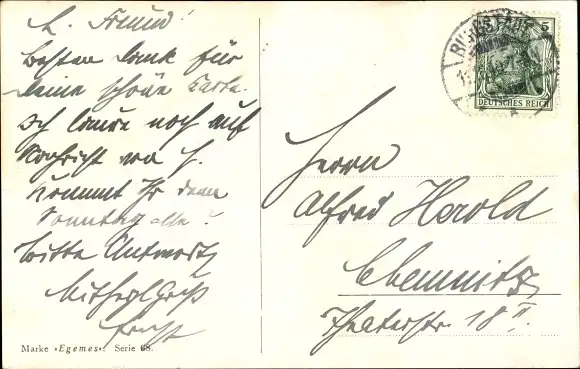 L. Freund!
Besten Dank für
Deine schöne Karte.
Ich laure noch auf
Nachricht von H.
Kommt Ihr denn
Sonntag alle?
Bitte Antwort
Mit herzl Gruß
Ernst
Marke »Egemes«: Serie 68.
5
DEUTSCHES REICH
Herrn
Alfred Herold
Chemnitz
Theaterstr 18 II.